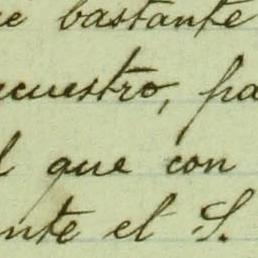 e bastante
cuestro, pa
l que con
nte el S.